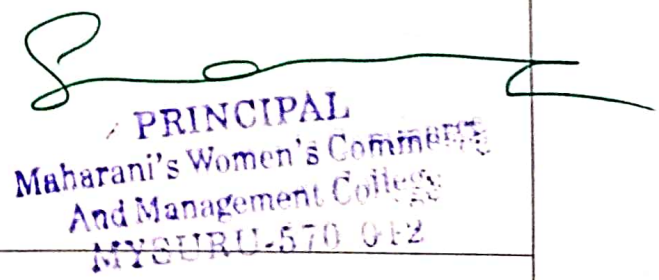 PRINCIPAL
Maharani's Women's Commerce
And Management College
MYSURU-570 012